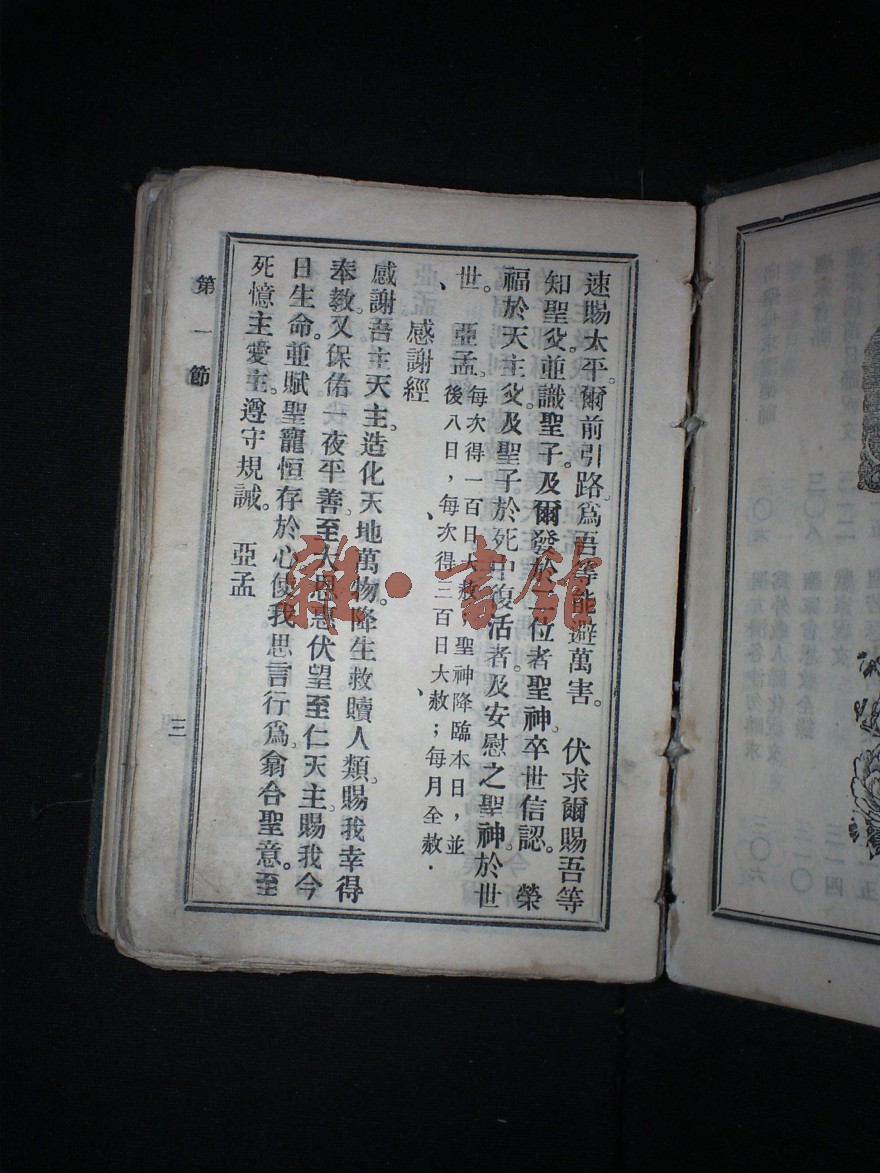 速賜太平。爾前引路。爲吾等能避萬害。　伏求爾賜吾等
知聖父。並識聖子。及爾發於二位者聖神。卒世信認。　榮
福於天主父。及聖子於死中復活者。及安慰之聖神。於世
世。　亞孟。
每次得一百日大赦，聖神降臨本日，並
後八日，每次得三百日大赦；每月全赦．
感謝經
感謝吾主天主。造化天地萬物。降生救贖人類。賜我幸得
奉教。又保佑一夜平善。至大恩惠。伏望至仁天主。賜我今
日生命。並賦聖寵。恒存於心。俾我思言行爲。翕合聖意。至
死憶主愛主。遵守規誡。　亞孟
第一節
三
雜·書館